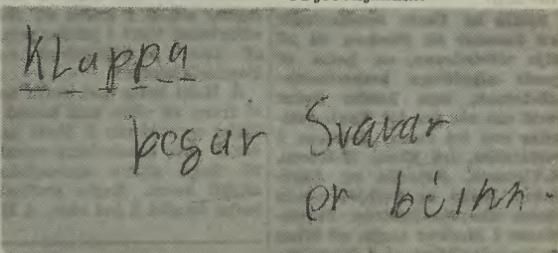 Klappa
þegar Svavar
er búinn.